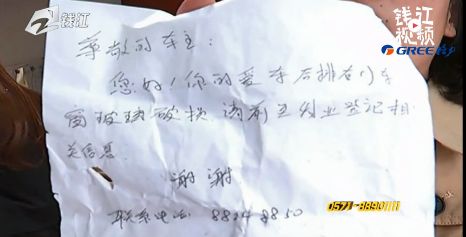 钱江
钱江视频
GREE 格力
尊敬的车主：
您好！你的爱车后排右门车
窗玻璃破损，请前至物业登记相
关信息.
谢谢
联系电话 8824 8850
0571-88901111